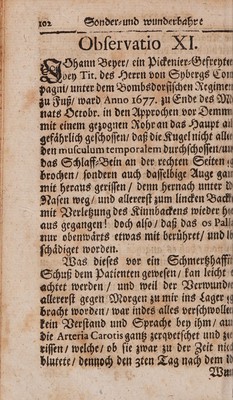 102 Sonder- und wunderbahre
Observatio XI.
JOhann Beyer/ ein Pickenier-Gefreyter
bey Tit. des Herrn von Sybergs Com
pagni/ unter dem Bombsdorffischen Regiment
zu Fuß/ ward Anno 1677. zu Ende des Mo
nats Octobr. in den Approchen vor Demmin
mit einem gezognen Rohr an das Haupt
gefährlich geschossen/ daß die Kugel nicht allein
den musculum temporalem durchschossen/ und
das Schlaff-Bein an der rechten Seiten
brochen/ sondern auch dasselbige Auge gantz
mit heraus gerissen/ denn hernach unter
Nasen weg/ und allererst zum lincken Backen
mit Verletzung des Kinnbackens wieder her
aus gegangen! doch also/ daß das os Pala
nur obenwärts etwas mit berühret/ und
schädiget worden.
Was dieses vor ein Schmertzhaffter
Schuß dem Patienten gewesen/ kan leicht
achtet werden/ und weil der Verwundete
allererst gegen Morgen zu mir ins Lager
bracht worden/ war indes alles verschwollen
kein Verstand und Sprache bey ihm/ auch
die Arteria Carotis gantz zerquetschet und zer
rissen/ welche/ ob sie zwar zu der Zeit nicht
blutete/ dennoch den 3ten Tag nach dem